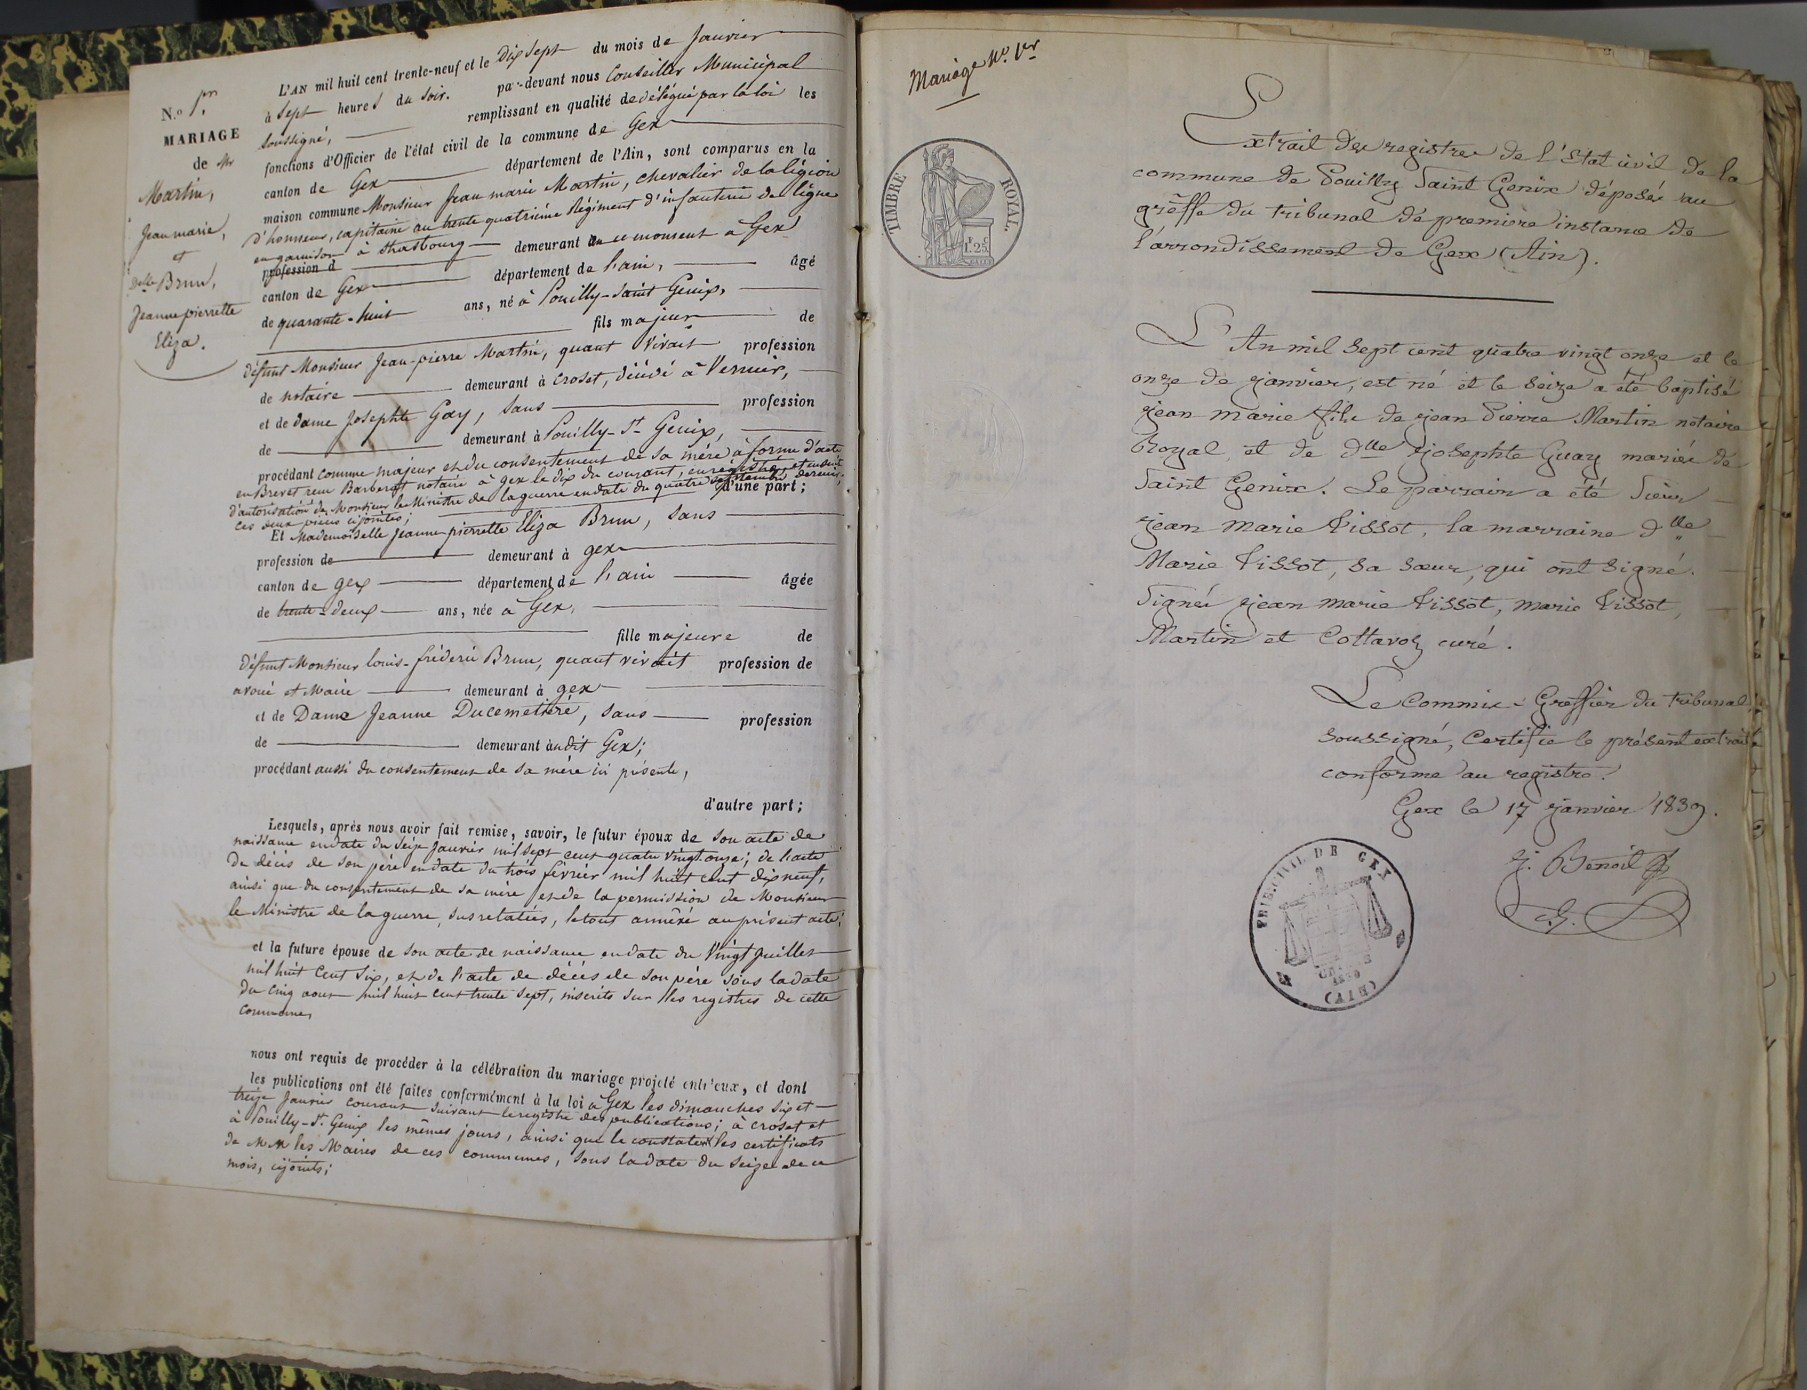 N.o 1er
MARIAGE
de Mr
Martin,
Jean marie,
et
Delle Brun,
Jeanne pierrette
Eliza.
L'AN mil huit cent trente-neuf et le Dix sept du mois de Janvier
à sept heures du soir. par-devant nous Conseiller Municipal
soussigné, remplissant en qualité de délégué par la loi les
fonctions d'Officier de l'état civil de la commune de Gex
canton de Gex département de l'Ain, sont comparus en la
maison commune Monsieur Jean marie Martin, chevalier de la légion
d'honneur, capitaine au trente quatrième Régiment d'infanterie de ligne
en garnison à Strasbourg demeurant en ce moment à Gex
profession d
canton de Gex département de l'ain, âgé
de quarante-huit ans, né à Pouilly-Saint Genix,
fils majeur de
défunt Monsieur Jean-pierre Martin, quant vivait profession
de notaire demeurant à Croset, décédé à Vernier,
et de dame Josephte Gay, sans profession
de demeurant à Pouilly-St Genix,
procédant comme majeur et du consentement de sa mère à forme d'acte
en Brevet reçu Barberat notaire à Gex le dix du courant, enregistré, et ensuite
d'autorisation de Monsieur le Ministre de la guerre en date du quatre septembre dernier,
ces deux pièces cijointes; d'une part;
Et Mademoiselle Jeanne-pierrette Eliza Brun, sans
profession de demeurant à gex
canton de gex département de l'ain âgée
de trente-deux ans, née à Gex,
fille majeure de
défunt Monsieur Louis-fréderic Brun, quant vivait profession de
avoué et Maire demeurant à gex
et de Dame Jeanne Ducemetière, sans profession
de demeurant audit Gex;
procédant aussi du consentement de sa mère ici présente,
d'autre part;
Lesquels, après nous avoir fait remise, savoir, le futur époux de son acte de
naissance en date du seize Janvier mil sept cent quatre vingt onze; de l'acte
de décès de son père en date du trois février mil huit cent dix neuf,
ainsi que du consentement de sa mère et de la permission de Monsieur
le Ministre de la guerre, susrelatées, le tout annèxé au présent acte;
et la future épouse de son acte de naissance en date du Vingt Juillet
mil huit cent six, et de l'acte de décès de son père sous la date
du cinq aout mil huit cent trente sept, inscrits sur les registres de cette
commune,
nous ont requis de procéder à la célébration du mariage projeté entr'eux, et dont
les publications ont été faites conformément à la loi à Gex les dimanches six et
treize Janvier courant suivant le registre des publications; à croset et
à Pouilly-St Genix les mêmes jours, ainsi que le constatent les certificats
de MM les Maires de ces communes, sous la date du seize de ce
mois, cijoints;
Mariage No. 1er
TIMBRE ROYAL.
1f 25c
Extrait des registres de l'Etat civil de la
commune de Pouilly Saint Genix déposés au
greffe du tribunal de première instance de
l'arrondissement de Gex (Ain).
L'An mil sept cent quatre vingt onze et le
onze de janvier, est né et le seize a été baptisé
jean marie fils de jean Pierre Martin notaire
Royal, et de dlle josephte Guay mariés de
Saint Genix. Le parrain a été Sieur
jean marie Tissot, la marraine dlle
Marie Tissot, sa sœur, qui ont signé.
Signés jean marie Tissot, marie Tissot,
Martin et Cottavoz curé.
Le Commis-Greffier du tribunal
soussigné, Certifie le présent extrait
conforme au registre.
Gex le 17 janvier 1839.
J. Benoit
c. G.
TRIB. CIVIL DE GEX
(AIN)